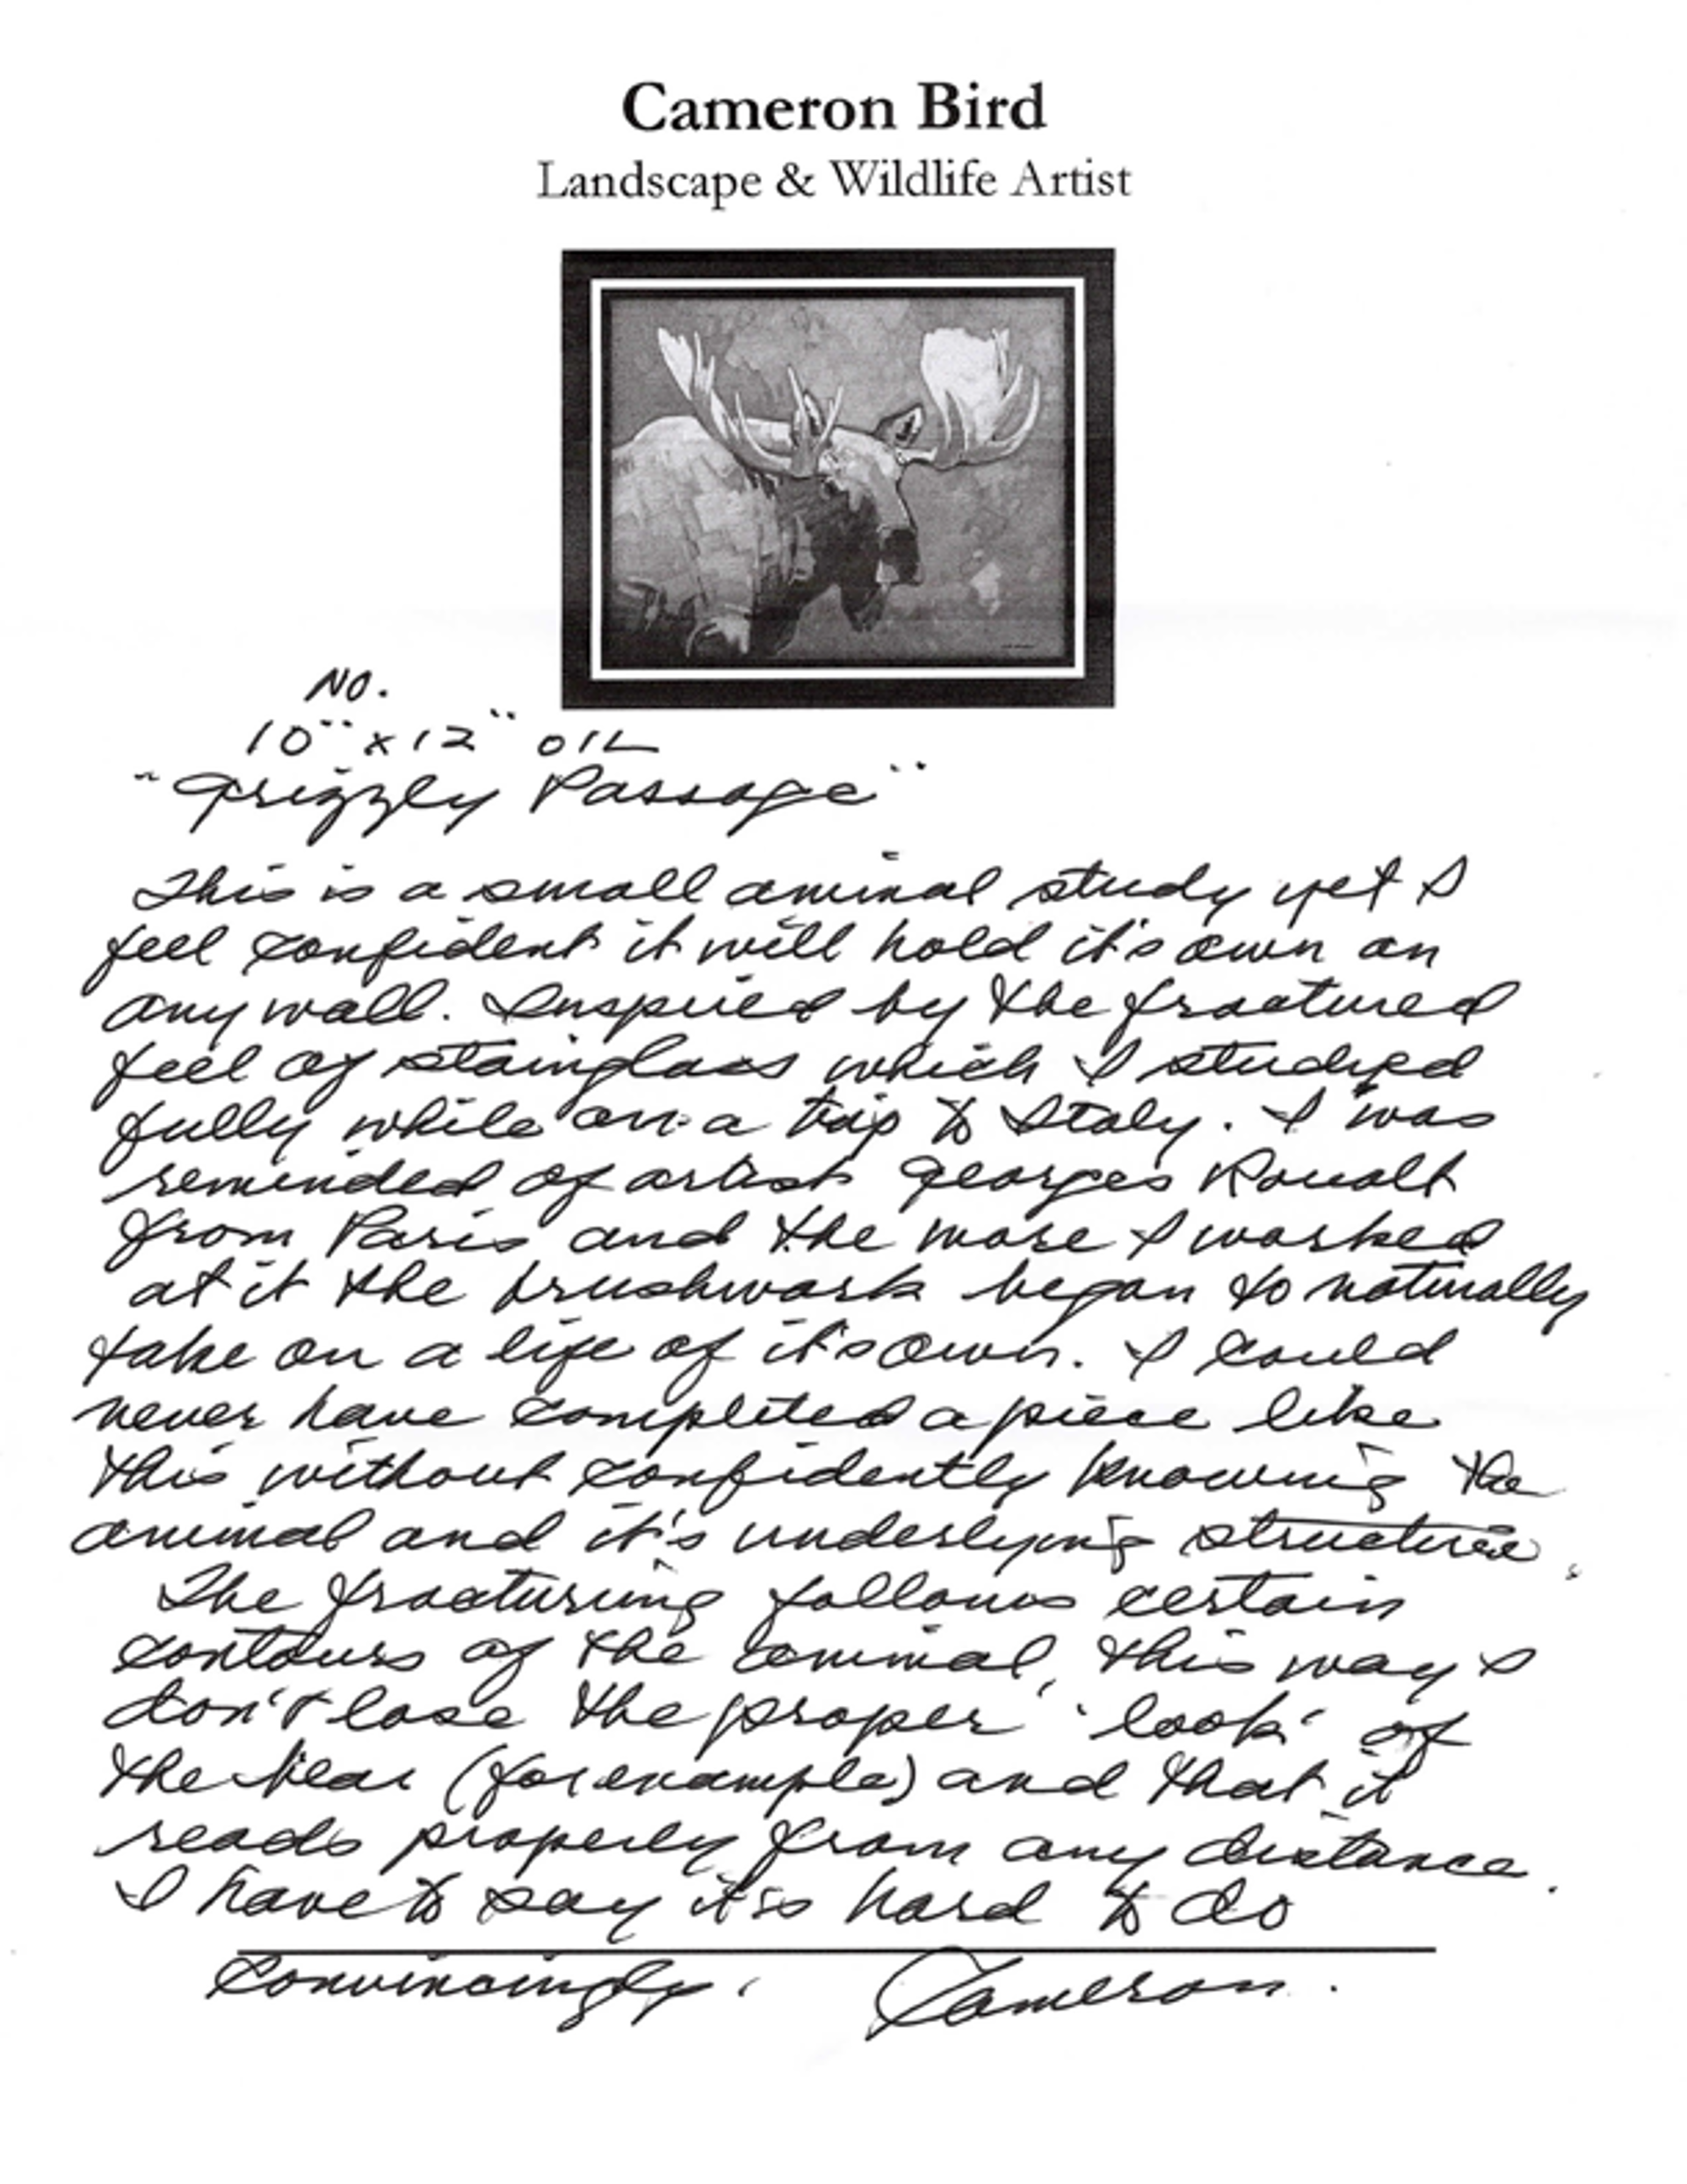 Cameron Bird
Landscape & Wildlife Artist
NO.
10" x 12" OIL
"Grizzly Passage"
This is a small animal study yet I
feel confident it will hold it's own on
any wall. Inspired by the fractured
feel of stainglass which I studied
fully while on a trip to Italy. I was
reminded of artist Georges Roualt
from Paris and the more I worked
at it the brushwork began to naturally
take on a life of it's own. I could
never have completed a piece like
this without confidently knowing the
animal and it's underlying structure.
The fracturing follows certain
contours of the animal, this way I
don't lose the proper 'look' of
the bear (for example) and that it
reads properly from any distance.
I have to say it is hard to do
convincingly. Cameron.